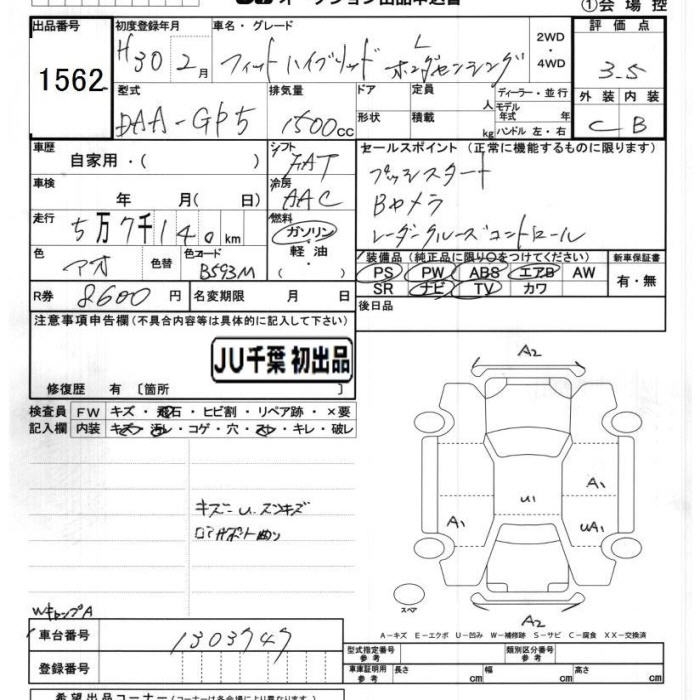 オークション出品申込書
①会場控
出品番号 1562
初度登録年月 H30 2月
車名・グレード フィットハイブリッド L ホンダセンシング
2WD ・ 4WD
評価点 3.5
型式 DAA-GP5
排気量 1500cc
ドア 形状
定員 人
積載 kg
ディーラー・並行
モデル年式 年
ハンドル 左・右
外装 C 内装 B
車歴 自家用・( )
シフト FAT
セールスポイント(正常に機能するものに限ります)
プッシュスタート
Bカメラ
レーダークルーズコントロール
車検 年 月( 日)
冷房 AAC
走行 5万7千140km
燃料 ガソリン・軽油・( )
色 アオ 色替 色コード B593M
装備品(純正品に限り○をつけてください)
PS PW ABS エアB AW
SR ナビ TV カワ
新車保証書 有・無
R券 8600円 名変期限 月 日
後日品
注意事項申告欄(不具合内容等は具体的に記入して下さい)
JU千葉 初出品
修復歴 有〔箇所 〕
検査員 FW キズ・飛石・ヒビ割・リペア跡・×要
記入欄 内装 キズ・汚レ・コゲ・穴・スレ・キレ・破レ
A2
A1
U1
A1
UA1
A2
スペア
A−キズ E−エクボ U−凹み W−補修跡 S−サビ C−腐食 XX−交換済
車台番号 1303747
型式指定番号 参考
類別区分番号 参考
登録番号
車庫証明用 参考 長さ cm 幅 cm 高さ cm
希望出品コーナー(コーナーは各会場により異なります)